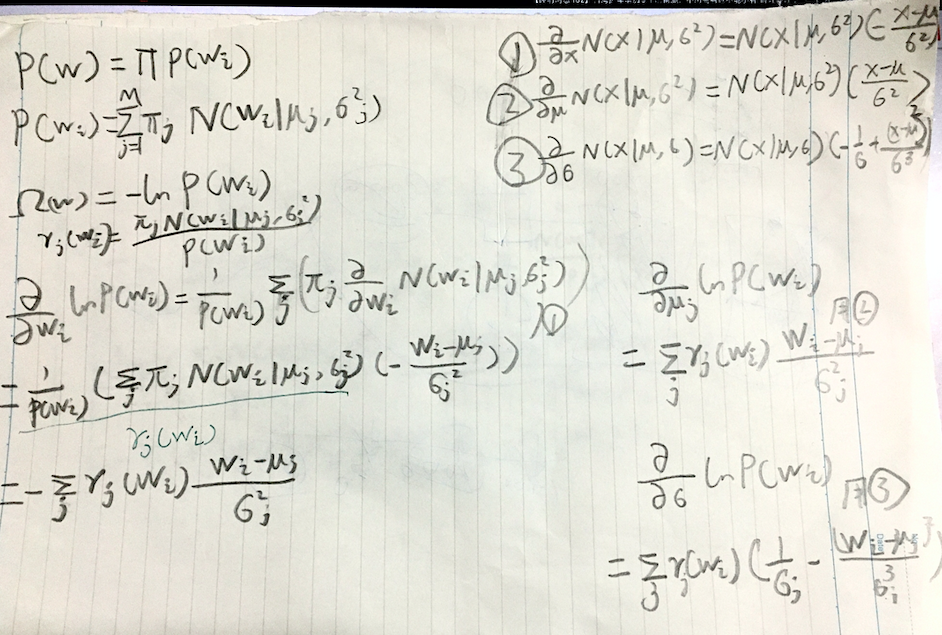 P(w) = Π P(wᵢ)
P(wᵢ) = Σ_{j=1}^{M} πⱼ N(wᵢ|μⱼ, σ²ⱼ)
Ω(w) = -ln P(wᵢ)
γⱼ(wᵢ) = πⱼ N(wᵢ|μⱼ, σⱼ²) / P(wᵢ)
∂/∂wᵢ ln P(wᵢ) = 1/P(wᵢ) Σⱼ (πⱼ ∂/∂wᵢ N(wᵢ|μⱼ σⱼ²))
①
= 1/P(wᵢ) (Σⱼ πⱼ N(wᵢ|μⱼ, σⱼ²) (- (wᵢ-μⱼ)/σⱼ²))
γⱼ(wᵢ)
= - Σⱼ γⱼ(wᵢ) (wᵢ-μⱼ)/σ²ⱼ
① ∂/∂x N(x|μ, σ²) = N(x|μ, σ²) (- (x-μ)/σ²)
② ∂/∂μ N(x|μ, σ²) = N(x|μ, σ²) ((x-μ)/σ²)
③ ∂/∂σ N(x|μ, σ) = N(x|μ, σ) (- 1/σ + (x-μ)²/σ³)
∂/∂μⱼ ln P(wᵢ)
用②
= Σⱼ γⱼ(wᵢ) (wᵢ-μⱼ)/σ²ⱼ
∂/∂σ ln P(wᵢ)
用③
= Σⱼ γⱼ(wᵢ) (1/σⱼ - (wᵢ-μⱼ)²/σ³ⱼ)